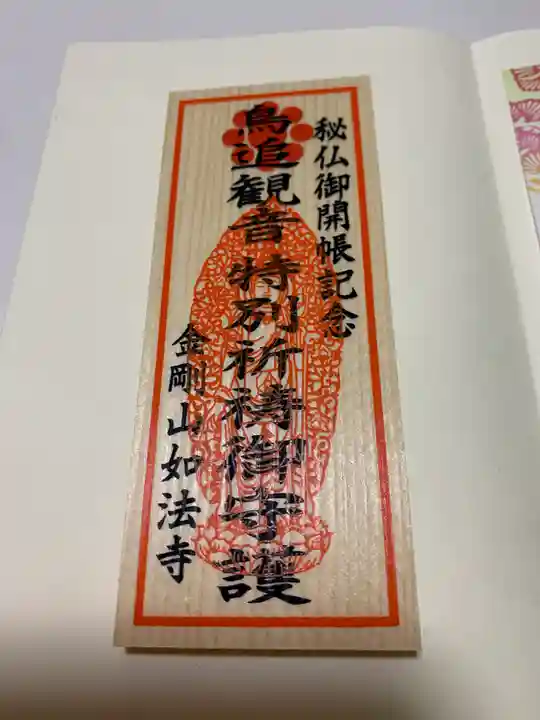 秘仏御開帳記念
鳥追観音特別祈祷御守護
金剛山如法寺